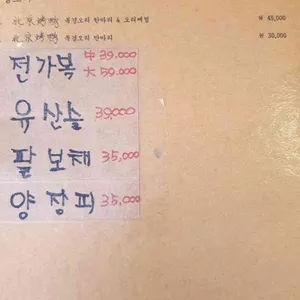 北京烤鴨 북경오리 한마리 & 오리메밀 ₩ 45,000
北京烤鴨 북경오리 반마리 ₩ 30,000
전가복 中 39,000
大 59,000
유산슬 39,000
팔보채 35,000
양장피 35,000